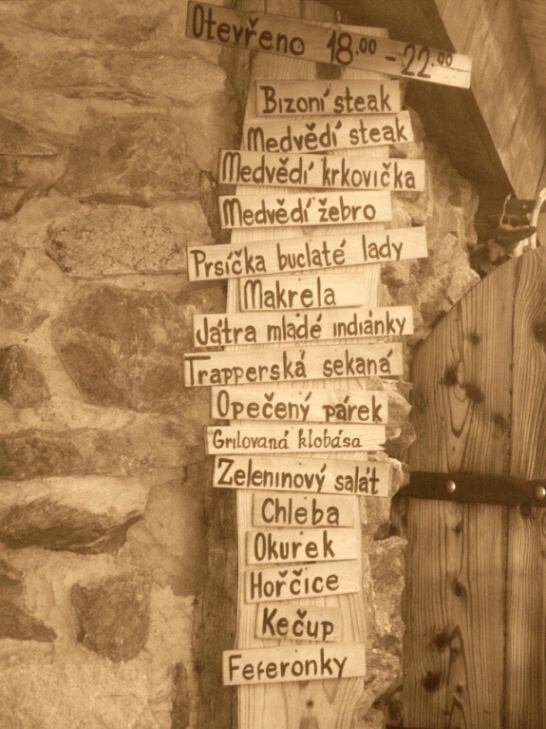 Otevřeno 18.00 - 22.00
Bizoní steak
Medvědí steak
Medvědí krkovička
Medvědí žebro
Prsíčka buclaté lady
Makrela
Játra mladé indiánky
Trapperská sekaná
Opečený párek
Grilovaná klobása
Zeleninový salát
Chleba
Okurek
Hořčice
Kečup
Feferonky